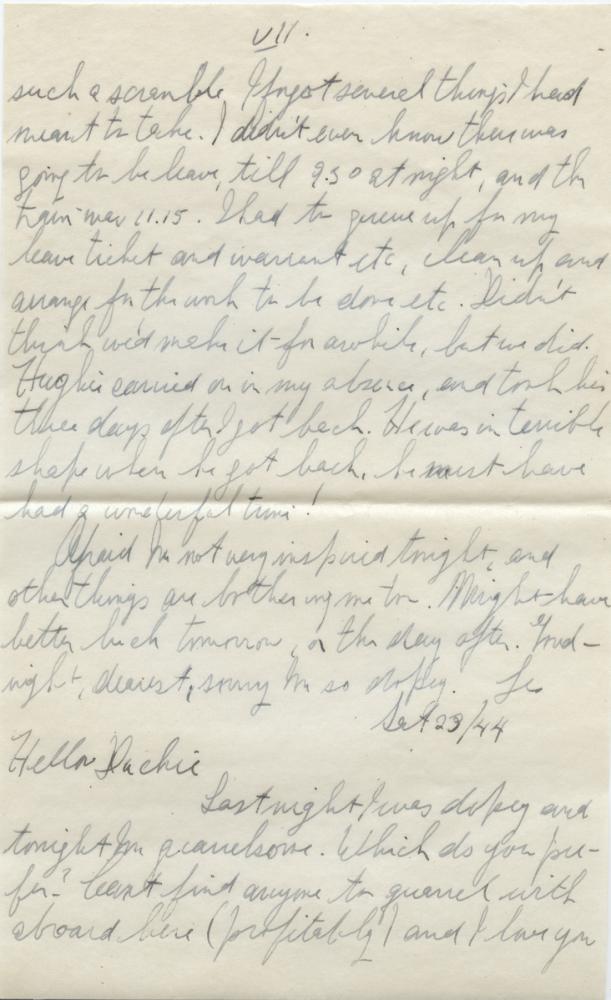 VII.
such a scramble I forgot several things I had
meant to take. I didn't even know there was
going to be leave, till 9.30 at night, and the
train was 11.15. I had to queue up for my
leave ticket and warrant etc, clean up and
arrange for the work to be done etc. Didn't
think we'd make it for awhile, but we did.
Hughie carried on in my absence, and took his
three days after I got back. He was in terrible
shape when he got back, he must have
had a wonderful time!
Afraid I'm not very inspired tonight, and
other things are bothering me too. Might have
better luck tomorrow, or the day after. Good-
night, dearest, sorry I'm so dopey. Les
Sat 23/44
Hello Duchie
Last night I was dopey and
tonight I'm quarrelsome. Which do you pre-
fer? Can't find anyone to quarrel with
aboard here (profitably) and I love you